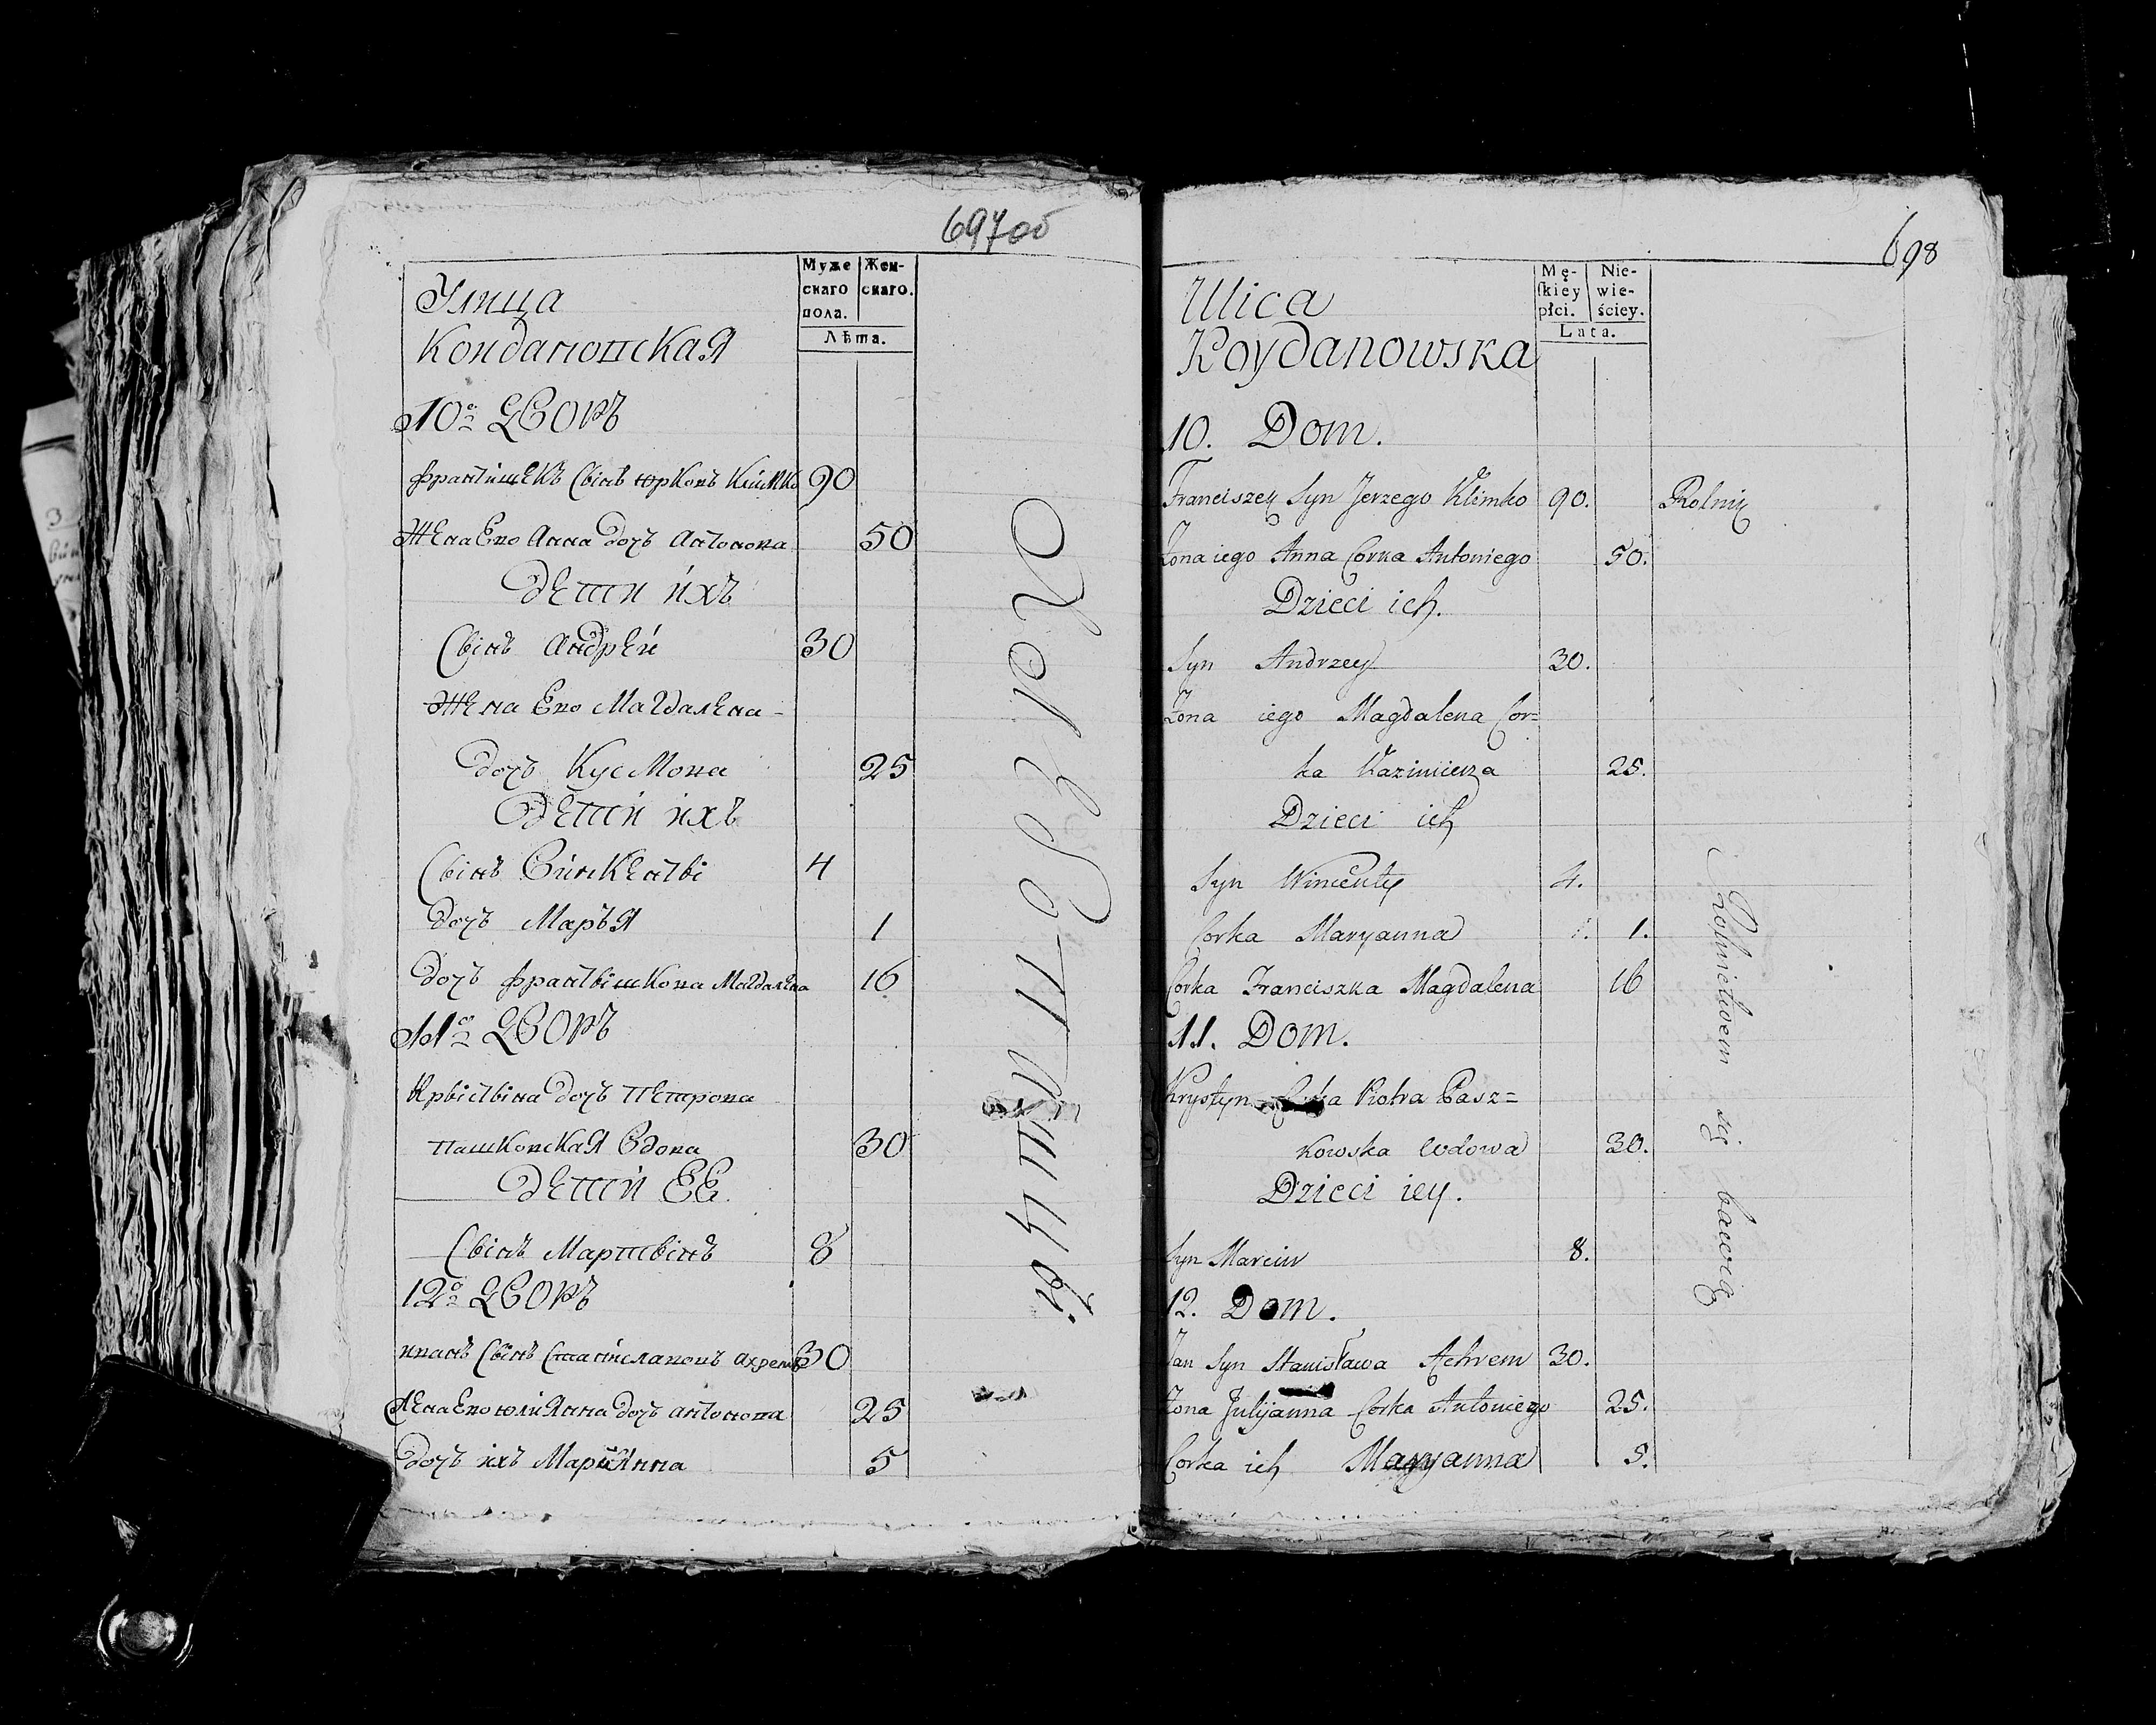 697об
Улица
Койдановская
Муже
скаго
пола.
Жен-
скаго.
Лѣта.
10е Дворъ
Францишекъ Сынъ Юрковъ Климко 90
Жена Ево Анна дочь Антонова 50
Дети ихъ
Сынъ Андрей 30
Жена Ево Магдалена
дочь Кусмова 25
Дети ихъ
Сынъ Винкенты 4
дочь Марья 1
дочь Францишкова Магдалена 16
11е Дворъ
Крыстына дочь Петрова
Пашковская Вдова 30
Дети Ее
Сынъ Мартынъ 8
12е Дворъ
Иванъ Сынъ Станиславовъ Ахремъ 30
Жена Ево Юлиянна дочь Антонова 25
дочь ихъ Мариянна 5
698
Ulica
Koydanowska
Mę-
ſkiey
płci.
Nie-
wie-
ściey.
Lata.
10. Dom.
Franciszek Syn Jerzego Klimko 90. Rolnik
Zona iego Anna Corka Antoniego 50.
Dzieci ich.
Syn Andrzey 30.
Zona iego Magdalena Cor=
ka Kazimierza 25.
Dzieci ich
Syn Wincenty 4.
Corka Maryanna 1.
Corka Franciszka Magdalena 16
11. Dom.
Krystyna Corka Piotra Pasz=
kowska Wdowa 30.
Dzieci iey.
Syn Marcin 8.
12. Dom.
Jan Syn Stanisława Achrem 30.
Zona Julijanna Corka Antoniego 25.
Corka ich Maryanna 5.
Rolnictwem się bawią